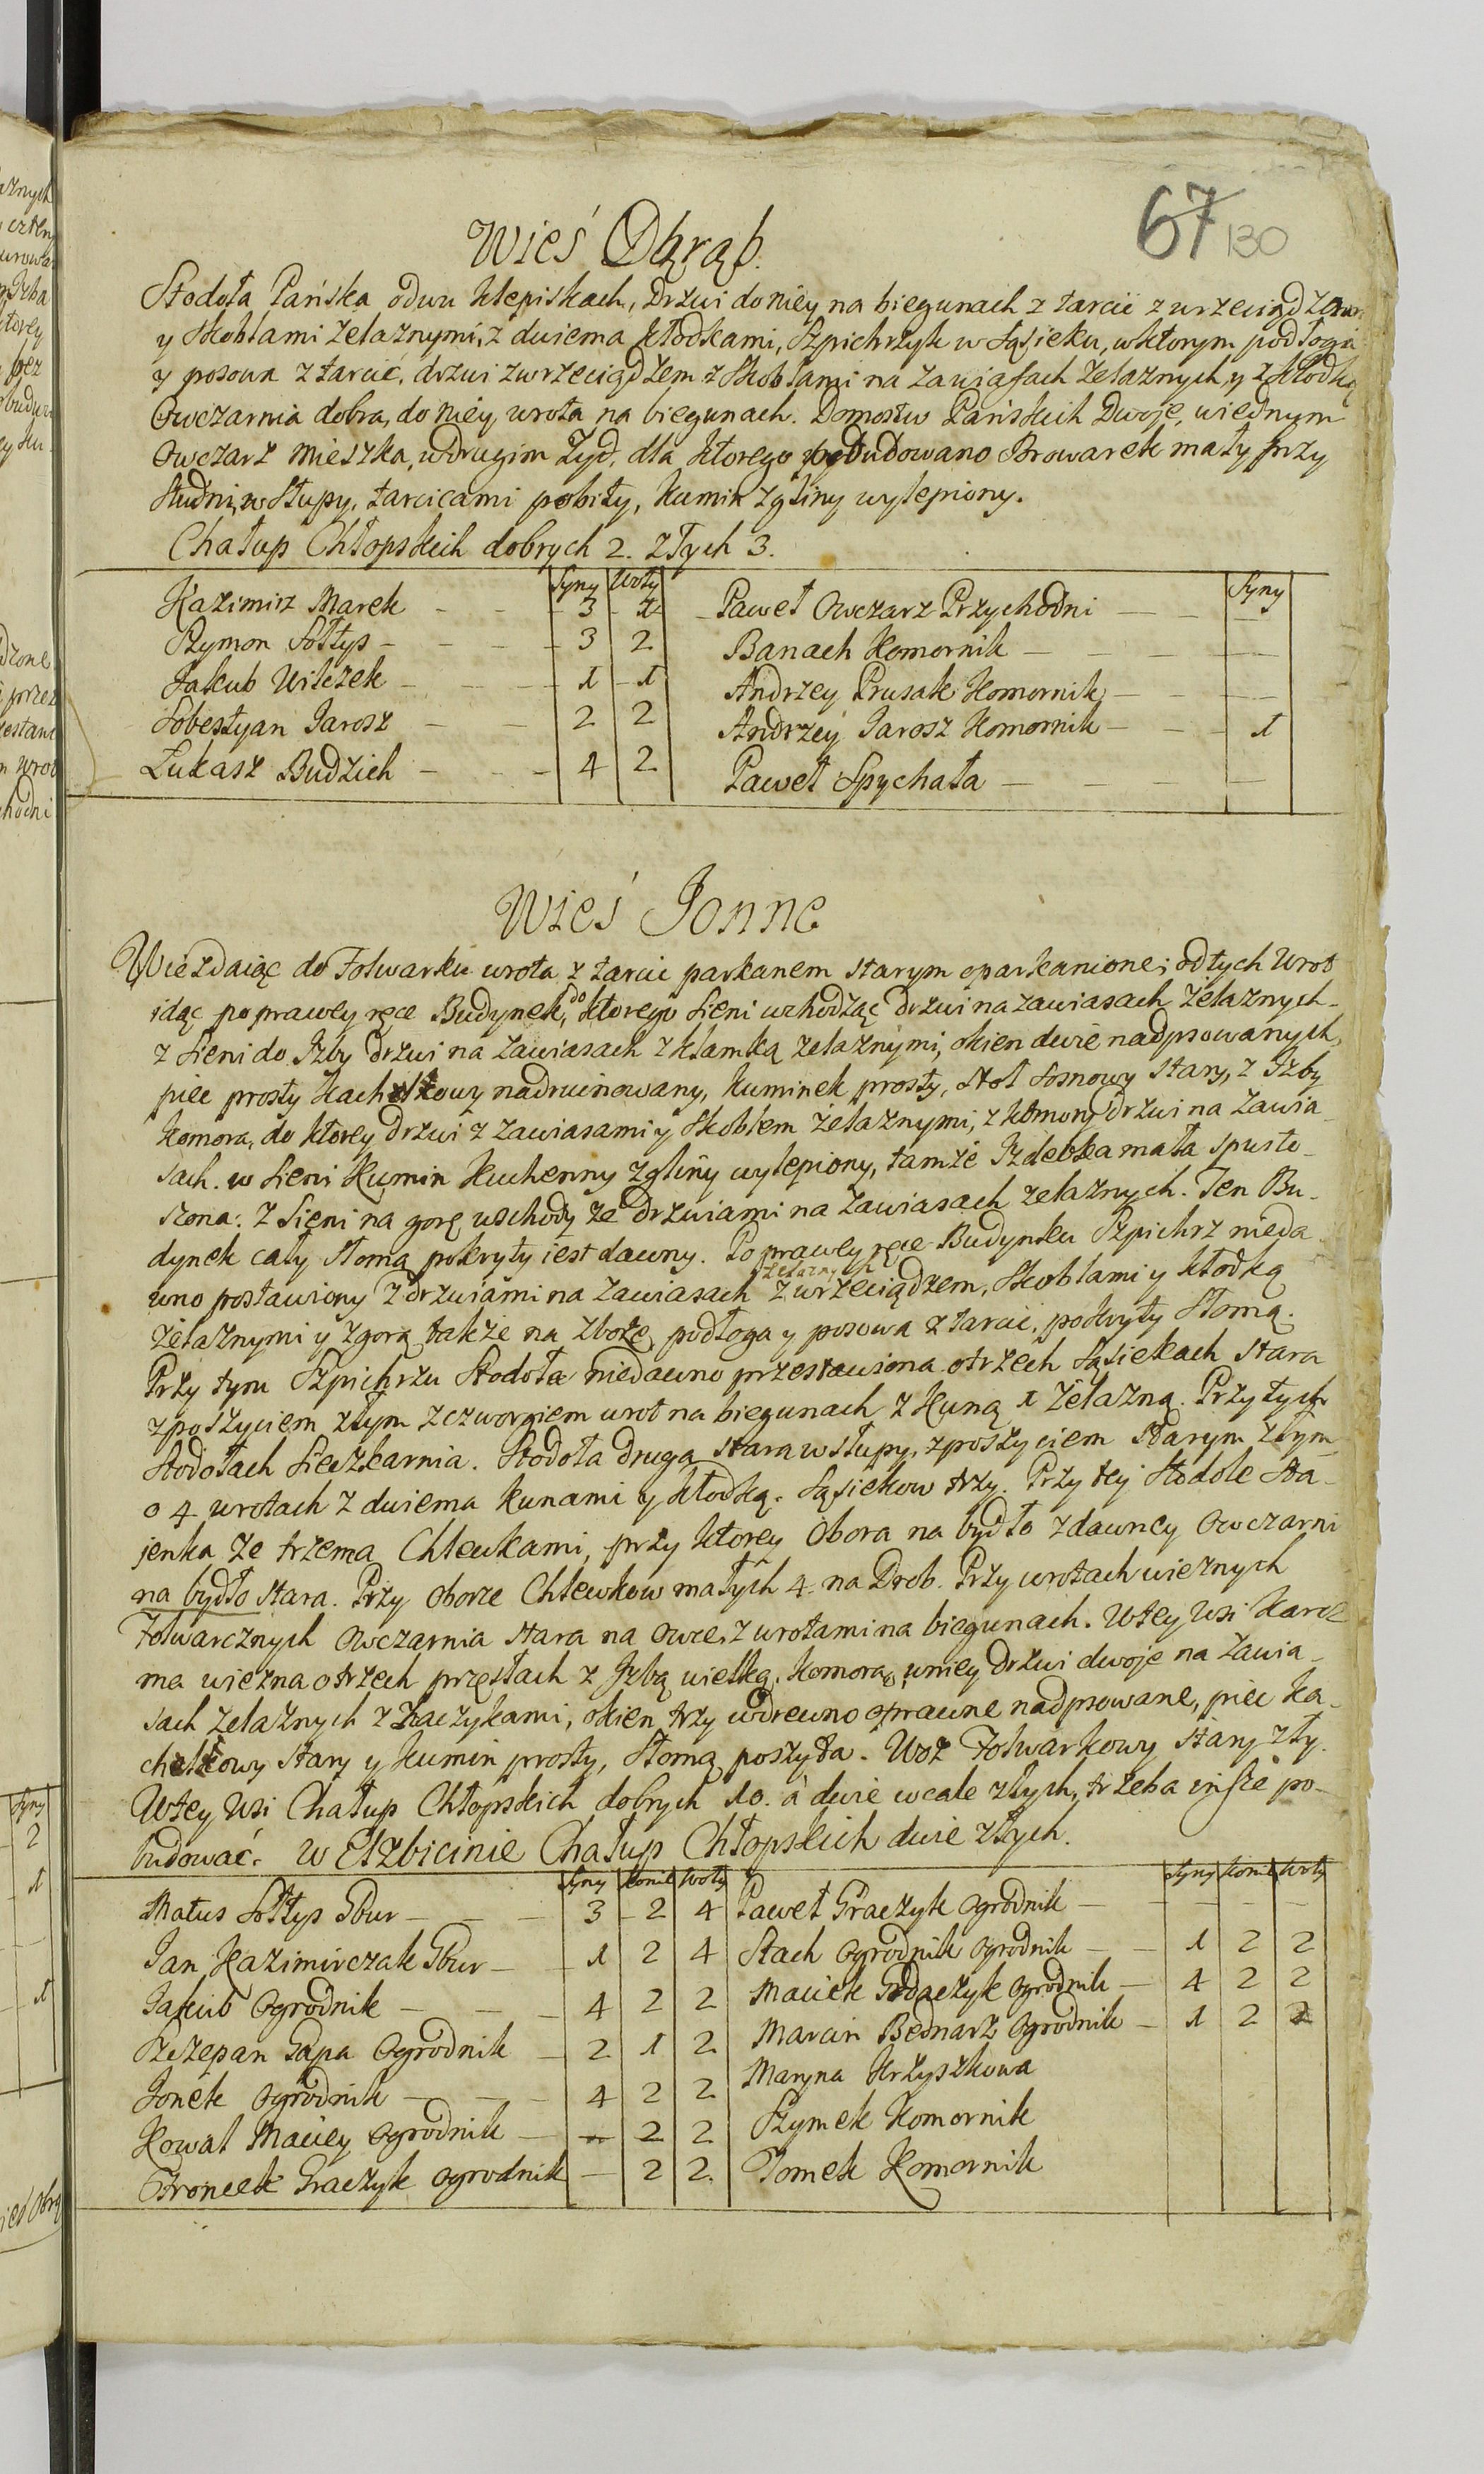 67 130
Wieś Dąrąb.
Stodoła Pańska o dwu klepiskach, Drzwi do niey na biegunach z tarcic z wrzeciądzem
y Skoblami żelaznymi, z dwiema kłodkami, Szpichrzyk w Sąsieku, w ktorym podłoga
y posowa z tarcić, drzwi z wrzeciądżem z Skoblami na zawiasach żelaznych, y z kłodką
Owczarnia dobra, do niey wrota na biegunach. Domostw Pańskich Dwoje, w iednym
Owczarz mieszka, w drugim Żyd, dla ktorego pobudowano Browarek mały przy
Studni, w Słupy, tarcicami pobity, kumin z gliny wylepiony.
Chałup Chłopskich dobrych 2. złych 3.
Syny Woły Syny
Kazimirz Marek - - 3 - 2 - Paweł Owczarz Przychodni - - -
Szymon Sołtys - - - 3 2 Banach Komornik - - - -
Jakub Wilczek - - - 1 - 1 Andrzey Prusak Komornik - - -
Sobestyan Jarosz - - 2 2 Andrzey Jarosz Komornik - - - 1
Łukasz Budzich - - - 4 2 Paweł Spychała - - - -
Wieś Jonne
Wiezdaiąc do Folwarku wrota z tarcic parkanem starym oparkanione; od tych Wrot
idąc po prawey ręce Budynek, do ktorego Sieni wchodząc drzwi na zawiasach żelaznych -
z Sieni do Izby drzwi na zawiasach z klamką żelaznymi, okien dwie nadpsowanych,
piec prosty kachlkowy nadruinowany, kuminek prosty, stoł sosnowy stary, z Izby
komora, do ktorey drzwi z zawiasami y Skoblem żelaznymi, z komory drzwi na zawia-
sach. w Sieni Kumin kuchenny z gliny wylepiony, tamże Izdebka mała spusto-
szona. z Sieni na gorę wschody ze drzwiami na zawiasach zelaznych. Ten Bu-
dynek cały słomą pokryty iest dawny. Po prawey ręce Budynku Szpichrz nieda
wno postawiony z drzwiami na zawiasach żelaznych z wrzeciądzem, Skoblami y kłodką
żelaznymi y z gorą także na zboże, podłoga y posowa z tarcic, pokryty słomą.
Przy tym Szpichrzu Stodoła niedawno przestawiona o trzech Sąsiekach stara
z poszyciem złym z czworgiem wrot na biegunach z kuną 1 żelazną. Przy tych
Stodołach Sieczkarnia. Stodoła druga stara w słupy, z poszyciem starym złym
o 4. wrotach z dwiema kunami y kłodką. Sąsiekow trzy. Przy tej Stodole Sta-
jenka ze trzema Chlewkami, przy ktorey Obora na bydło z dawney Owczarni
na bydło stara. Przy oborze Chlewkow małych 4. na Drob. Przy wrotach wieznych
Folwarcznych Owczarnia stara na owce, z wrotami na biegunach. W tey Wsi Karcz
ma wiezna o trzech przęsłach z Izbą wielką, komorą, w niey drzwi dwoje na zawia-
sach żelaznych z haczykami, okien trzy w drewno oprawne nadpsowane, piec ka-
chelkowy stary y kumin prosty, słomą poszyta. Woz Folwarkowy stary zły.
W tey Wsi Chałup Chłopskich dobrych 10. à dwie wcale złych, trzeba insze po-
budować. w Elzbicinie Chałup Chłopskich dwie złych.
Syny Konie Woły Syny Konie Woły
Matus Sołtys Gbur - - - 3 - 2 4 Paweł Graczyk Ogrodnik - - - -
Jan Kazimirczak Gbur - - 1 2 4 Stach Ogrodnik ogrodnik - - 1 2 2
Jakub Ogrodnik - - - 4 2 2 Maciek Graczyk Ogrodnik - 4 2 2
Szczepan Gapa Ogrodnik - 2 1 2 Marcin Bednarz Ogrodnik - 1 2 2
Jonek Ogrodnik - - - 4 2 2 Maryna Krzyszkowa
Kowal Maciey Ogrodnik - - 2 2 Szymek Komornik
Froncek Graczyk ogrodnik - 2 2. Tomek Komornik